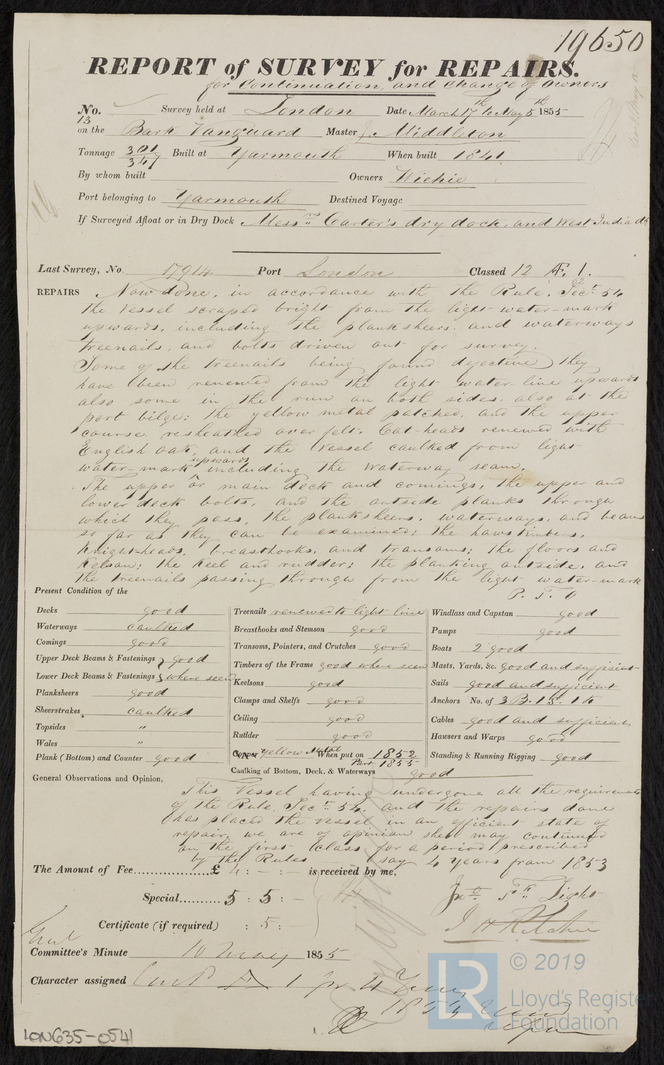 19650
REPORT of SURVEY for REPAIRS.
for Continuation, and Change of Owners
No. Survey held at London Date March 17th to May 5th 1855
13
on the Bark Vanguard Master Middleton
Tonnage 301/347 Built at Yarmouth When built 1841
By whom built Owners
Port belonging to Yarmouth Destined Voyage
If Surveyed Afloat or in Dry Dock Messrs Carter's dry dock, and West India dk
Last Survey, No. 17914 Port London Classed 12 Æ. 1.
REPAIRS Now done, in accordance with the Rule, Sect. 54
the Vessel scraped bright from the light water-mark
upwards, including the planksheers, and waterways
treenails, and bolts driven out for survey.
Some of the treenails being found defective, they
have been renewed from the light water line upwards
also some in the run on both sides, also at the
port bilge; the yellow metal patched, and the upper
course resheathed over felt. Cat-heads renewed with
English oak, and the Vessel caulked from light
water-mark upwards including the Waterway seam.
The upper or main deck and comings, the upper and
lower deck bolts, and the outside planks through
which they pass, the planksheers, waterways, and beams
so far as they can be examined; the hawstimbers,
Knightheads, breasthooks, and transoms; the floors and
Kelson; the keel and rudder; the planking outside, and
the treenails passing through from the light water-mark
P. T. O
Present Condition of the
Decks good
Waterways caulked
Comings good
Upper Deck Beams & Fastenings } good
Lower Deck Beams & Fastenings } where seen
Planksheers good
Sheerstrakes caulked
Topsides "
Wales "
Plank (Bottom) and Counter good
Treenails renewed to light line
Breasthooks and Stemson good
Transoms, Pointers, and Crutches good
Timbers of the Frame good where seen
Keelsons good
Clamps and Shelfs good
Ceiling good
Rudder good
Yellow Metal When put on 1852
Part 1855
Caulking of Bottom, Deck, & Waterways good
Windlass and Capstan good
Pumps good
Boats 2 good
Masts, Yards, &c. good and sufficient
Sails good and sufficient
Anchors No. of 3 B. 1 S. 1 K
Cables good and sufficient
Hawsers and Warps good
Standing & Running Rigging good
General Observations and Opinion,
This Vessel having undergone all the requirements
of the Rule, Sect. 54. and the repairs done
has placed the vessel in an efficient state of
repair, we are of opinion she may continued
on the first Class for a period prescribed
by the Rules (say 4 years from 1853
The Amount of Fee £ 4 : - : - is received by me,
Special 5 : 5 : -
Certificate (if required) : 5 : -
Committee's Minute 10 May 1855
Character assigned
LON635-0541
LR
© 2019
Lloyd's Register
Foundation